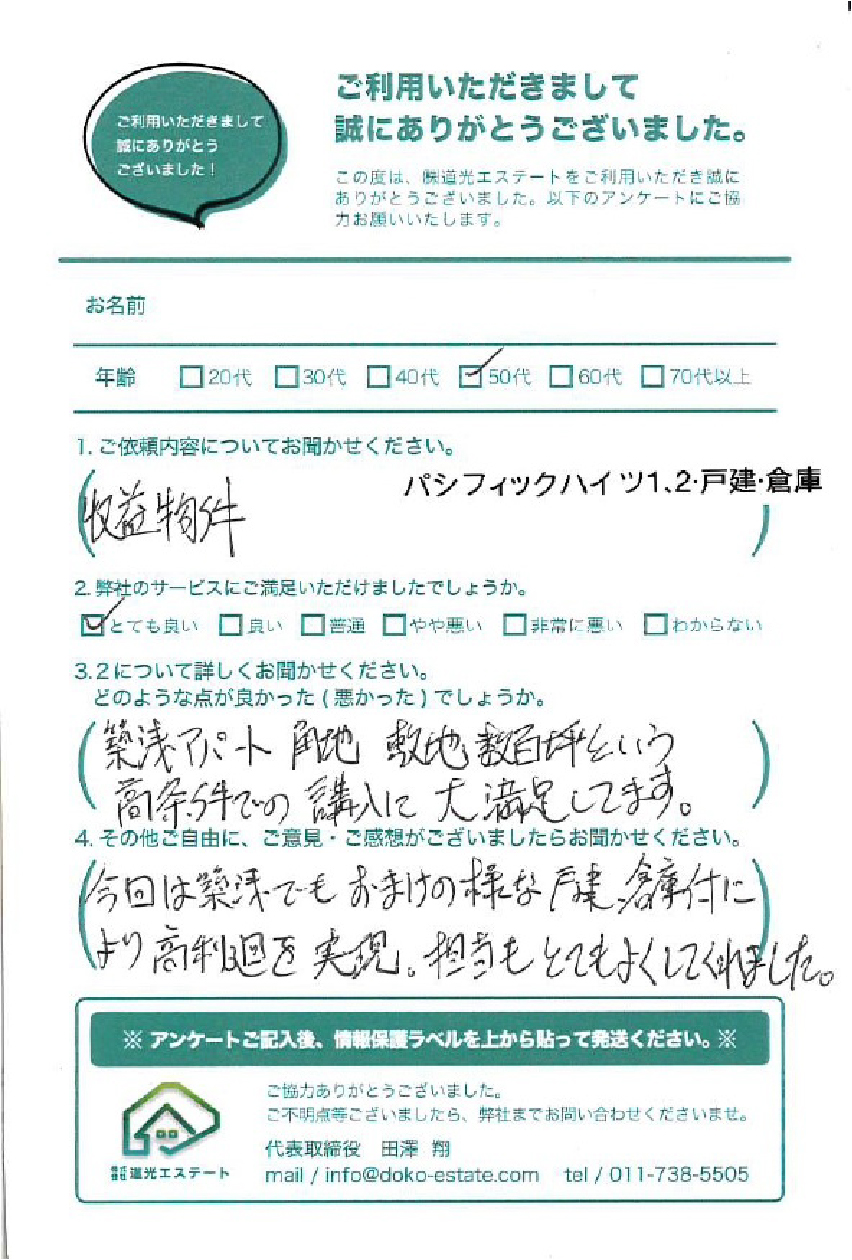 ご利用いただきまして
誠にありがとう
ございました！
ご利用いただきまして
誠にありがとうございました。
この度は、㈱道光エステートをご利用いただき誠に
ありがとうございました。以下のアンケートにご協
力お願いいたします。
お名前
年齢 20代 30代 40代 50代 60代 70代以上
1. ご依頼内容についてお聞かせください。
パシフィックハイツ1､2･戸建･倉庫
収益物件
2. 弊社のサービスにご満足いただけましたでしょうか。
とても良い 良い 普通 やや悪い 非常に悪い わからない
3. 2について詳しくお聞かせください。
どのような点が良かった ( 悪かった ) でしょうか。
築浅アパート 角地 敷地数百坪という
高条件での講入に大満足してます。
4. その他ご自由に、ご意見・ご感想がございましたらお聞かせください。
今回は築浅でもおまけの様な戸建、倉庫付に
より高利回を実現。担当もとてもよくしてくれました。
※ アンケートご記入後、情報保護ラベルを上から貼って発送ください。※
ご協力ありがとうございました。
ご不明点等ございましたら、弊社までお問い合わせくださいませ。
代表取締役 田澤 翔
株式会社道光エステート
mail / info@doko-estate.com tel / 011-738-5505